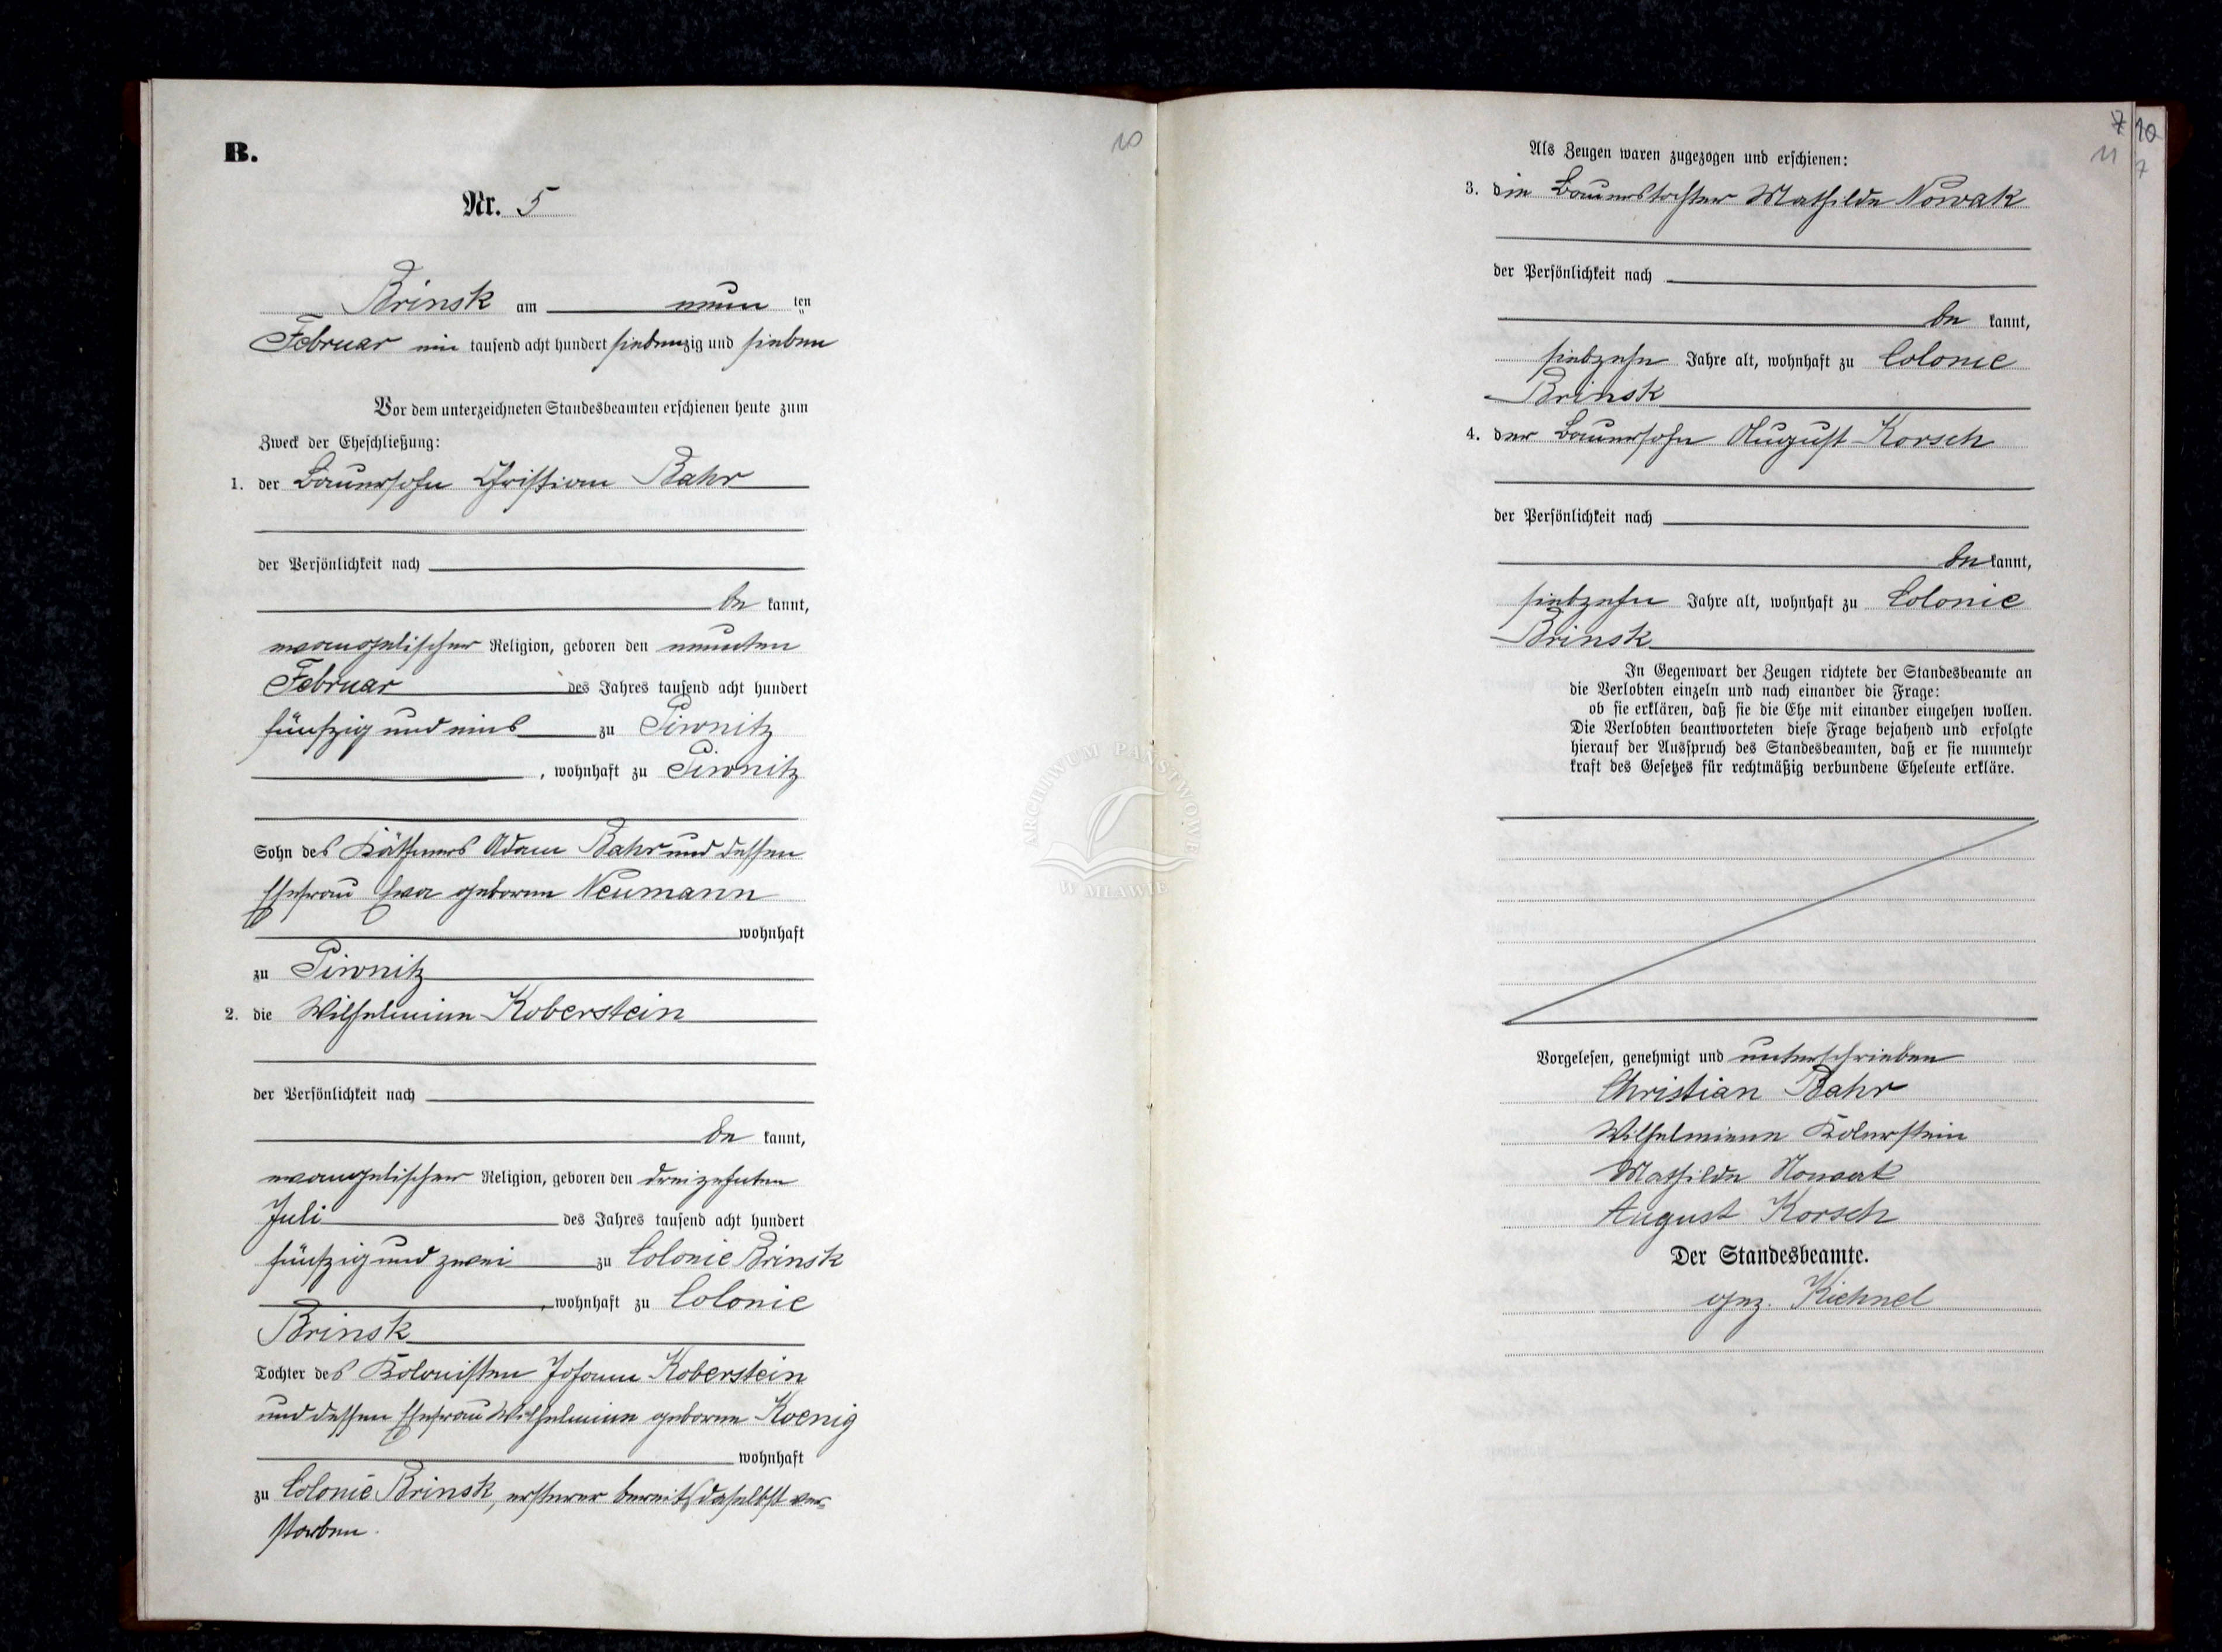 B.
10
Nr. 5
Brinsk am neun ten
Februar ein tausend acht hundert siebenzig und sieben
Vor dem unterzeichneten Standesbeamten erschienen heute zum
Zweck der Eheschließung:
1. der Bauersohn Christian Bahr
der Persönlichkeit nach
be kannt,
evangelischer Religion, geboren den neunten
Februar des Jahres tausend acht hundert
fünfzig und eins zu Piwnitz
, wohnhaft zu Piwnitz
Sohn des Käthners Adam Bahr und dessen
Ehefrau Eva geborne Neumann
wohnhaft
zu Piwnitz
2. die Wilhelmine Koberstein
der Persönlichkeit nach
be kannt,
evangelischer Religion, geboren den dreizehnten
Juli des Jahres tausend acht hundert
fünfzig und zwei zu Colonie Brinsk
, wohnhaft zu Colonie
Brinsk
Tochter des Kolonisten Johann Koberstein
und dessen Ehefrau Wilhelmine geborne Koenig
wohnhaft
zu Colonie Brinsk, ersterer bereits daselbst ver-
storben.
7 10
11 7
Als Zeugen waren zugezogen und erschienen:
3. die Bauerstochter Mathilde Nowak
der Persönlichkeit nach
be kannt,
siebzehn Jahre alt, wohnhaft zu Colonie
Brinsk
4. der Bauersohn August Korsch
der Persönlichkeit nach
be kannt,
siebzehn Jahre alt, wohnhaft zu Colonie
Brinsk
In Gegenwart der Zeugen richtete der Standesbeamte an
die Verlobten einzeln und nach einander die Frage:
ob sie erklären, daß sie die Ehe mit einander eingehen wollen.
Die Verlobten beantworteten diese Frage bejahend und erfolgte
hierauf der Ausspruch des Standesbeamten, daß er sie nunmehr
kraft des Gesetzes für rechtmäßig verbundene Eheleute erkläre.
Vorgelesen, genehmigt und unterschrieben
Christian Bahr
Wilhelmiene Koberstein
Mathilde Nowak
August Korsch
Der Standesbeamte.
gez. Kichnel
ARCHIWUM PAŃSTWOWE
W MŁAWIE